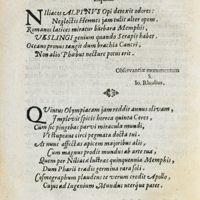 Niliaces ALPINVS Opi detexit odores:
Neglectis Hermes jam tulit alter opem.
Romanas latices miratur barbara Memphis,
VESLINGI genium quando Serapis habet.
Oceano pronus tangit dum brachia Cancri,
Non aliis Phœbus nectare potus erit.
Observantiæ monumentum
S.
Io. Rhodius.
QVintus Olympiacam jam reddit annus olivam,
Implevit spicis horrea quinta Ceres,
Cum sic pingebas parvi miracula mundi,
Vt stupeant circi pegmata docta tui.
At nunc affectas apicem majoribus alis,
Cum magnus prodis mundus ab arte tua,
Quem per Niliacâ lustras quinquennia Memphis,
Dum Pharii tradis germina rara soli.
Cosmographum plaudens te verum credit Apollo,
Cujus ad Ingenium Mundus uterque patet.